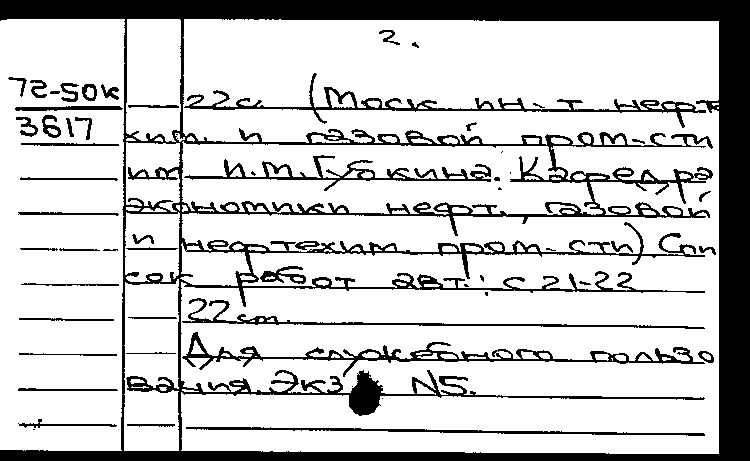 2.
72-50к
3617
22с. (Моск ин-т нефте
хим. и газовой пром-сти
им И.М.Губкина. Кафедра
экономики нефт., газовой
и нефтехим. пром-сти) Спи
сок работ авт.: с.21-22
22см.
Для служебного пользо
вания. Экз N5.